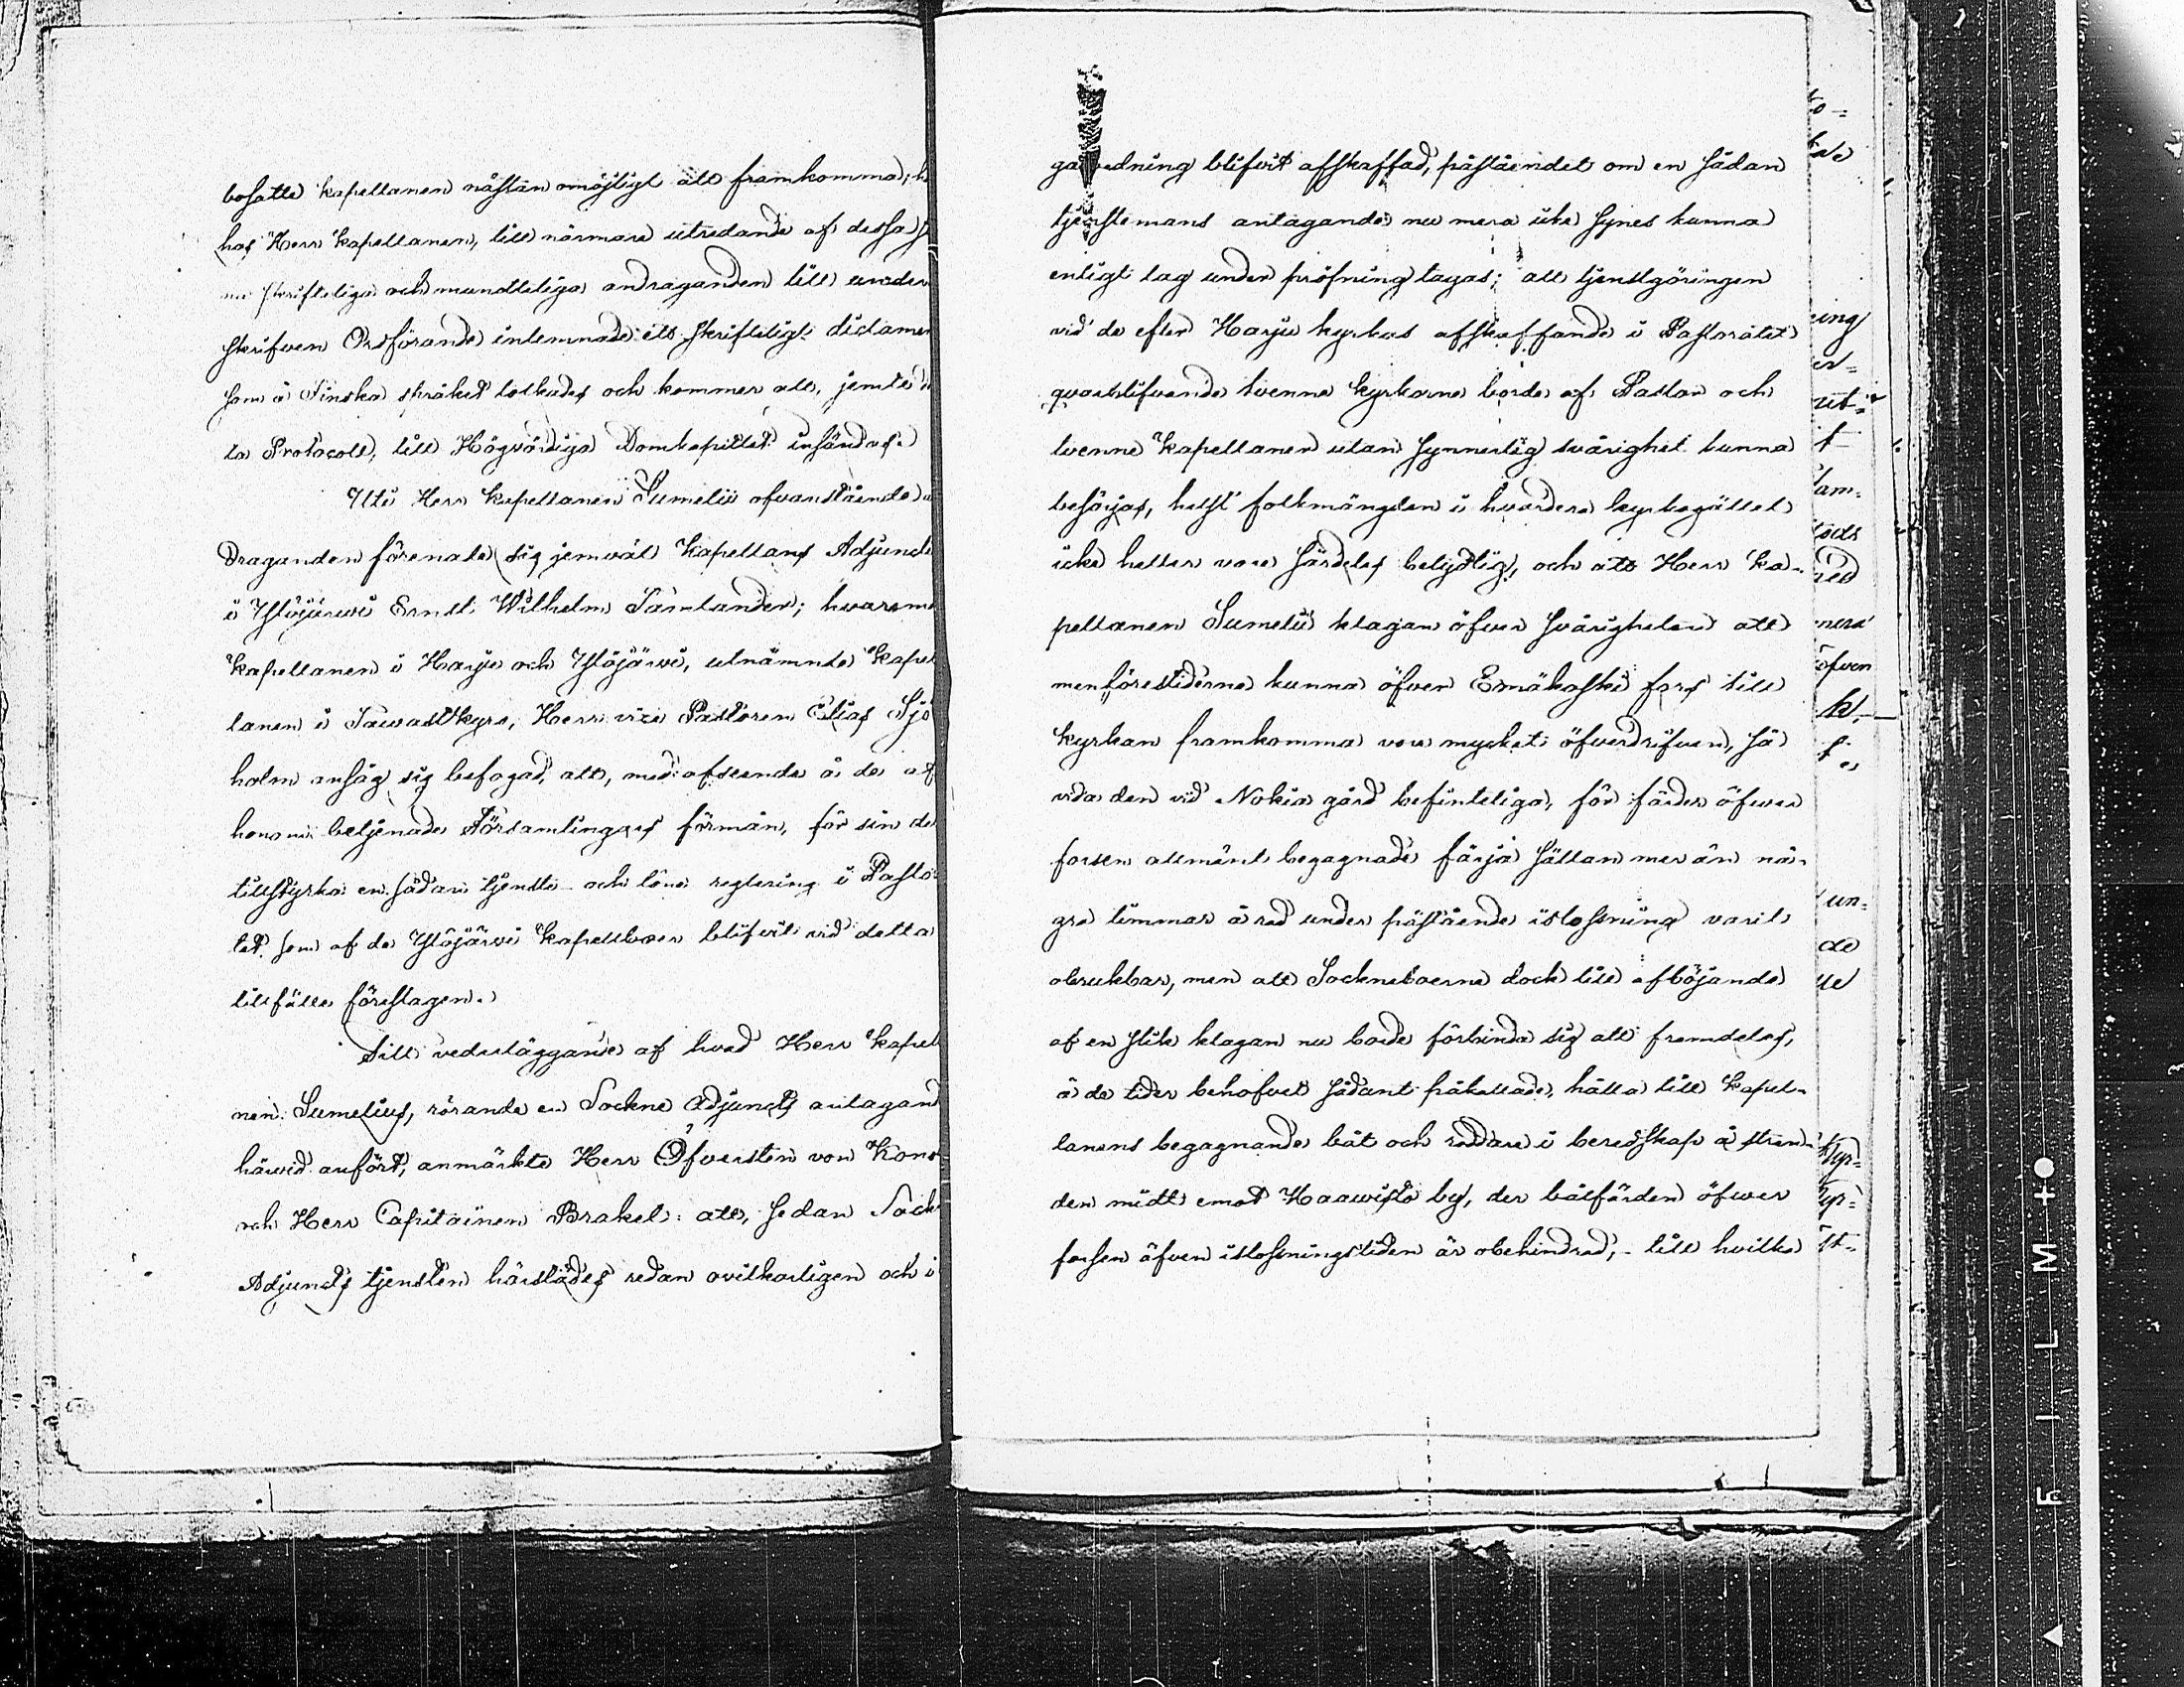 bosatte Kapellanen nästan omöjligt att framkomma;
hos Herr Kapellanen, till närmare utredande af dessa
skriftliga och mundtliga andraganden till under
skrifven Ordförande inlemnade ett skriftligt dictamen
som å Finska språket tolkades och kommer att, jemte
ta Protocoll, till Högvördiga Domkapitlet insändas.
Uti Herr Kapellanen Sumelii ofvanstående
draganden förenade sig jemväl Kapellans Adjunct
i Ylöjärvi Ernst Wilhelm Tamlander; hvaremot
Kapellanen i Harju och Ylöjärvi, utnämnde Kapel
lanen i Tawastkyro, Herr vice Pastoren Elias Sjö
holm ansåg sig befogad, att, med afseende å de af
honom betjenade Församlingars förmån, för sin del
tillstyrka en sådan tjenste- och löne reglering i Pasto
tet som af de Ylöjärvi Kapellboer blifvit vid detta
tillfälle föreslagen.
Till vederläggande af hvad Herr Kapell
nen Sumelius, rörande en Sockne Adjuncts antagand
härvid anfört, anmärkte Herr Öfversten von Kono
och Herr Capitainen Brakel: att, sedan Sock
Adjuncts tjensten härstädes redan ovilkorligen och i
garedning blifvit afskaffad, påståendet om en sådan
tjenstemans antagande nu mera icke synes kunna
enligt lag under pröfning tagas; att tjenstgöringen
vid de efter Harju kyrkas afskaffande i Pastoratet
qvarblifvande tvenne kyrkorne borde af Pastor och
tvenne Kapellaner utan synnerlig svårighet kunna
besörjas, helst folkmängden i hvardera kyrkogället
icke heller vore särdeles betydlig, och att Herr Ka-
pellanen Sumelii klagan öfver svårigheten att
menförestiderna kunna öfver Emäkoski fors till
kyrkan framkomma vore mycket öfverdrifven, så
vida den vid Nokia gård befintliga, för färder öfver
forsen allmänt begagnade färja sällan mer än nå-
gra timmar å rad under påstående islossning varit
obrukbar, men att Socknetboerne dock till afböjande
af en slik klagan nu borde förbinda sig att framdeles,
å de tider behofvet sådant påkallade, hålla till Kapel-
lanens begagnande båt och roddare i beredskap å stran-
den midt emot Haawisto by, der båtfärden öfver
forsen äfven islossningstiden är obehindrad; - till hvilka